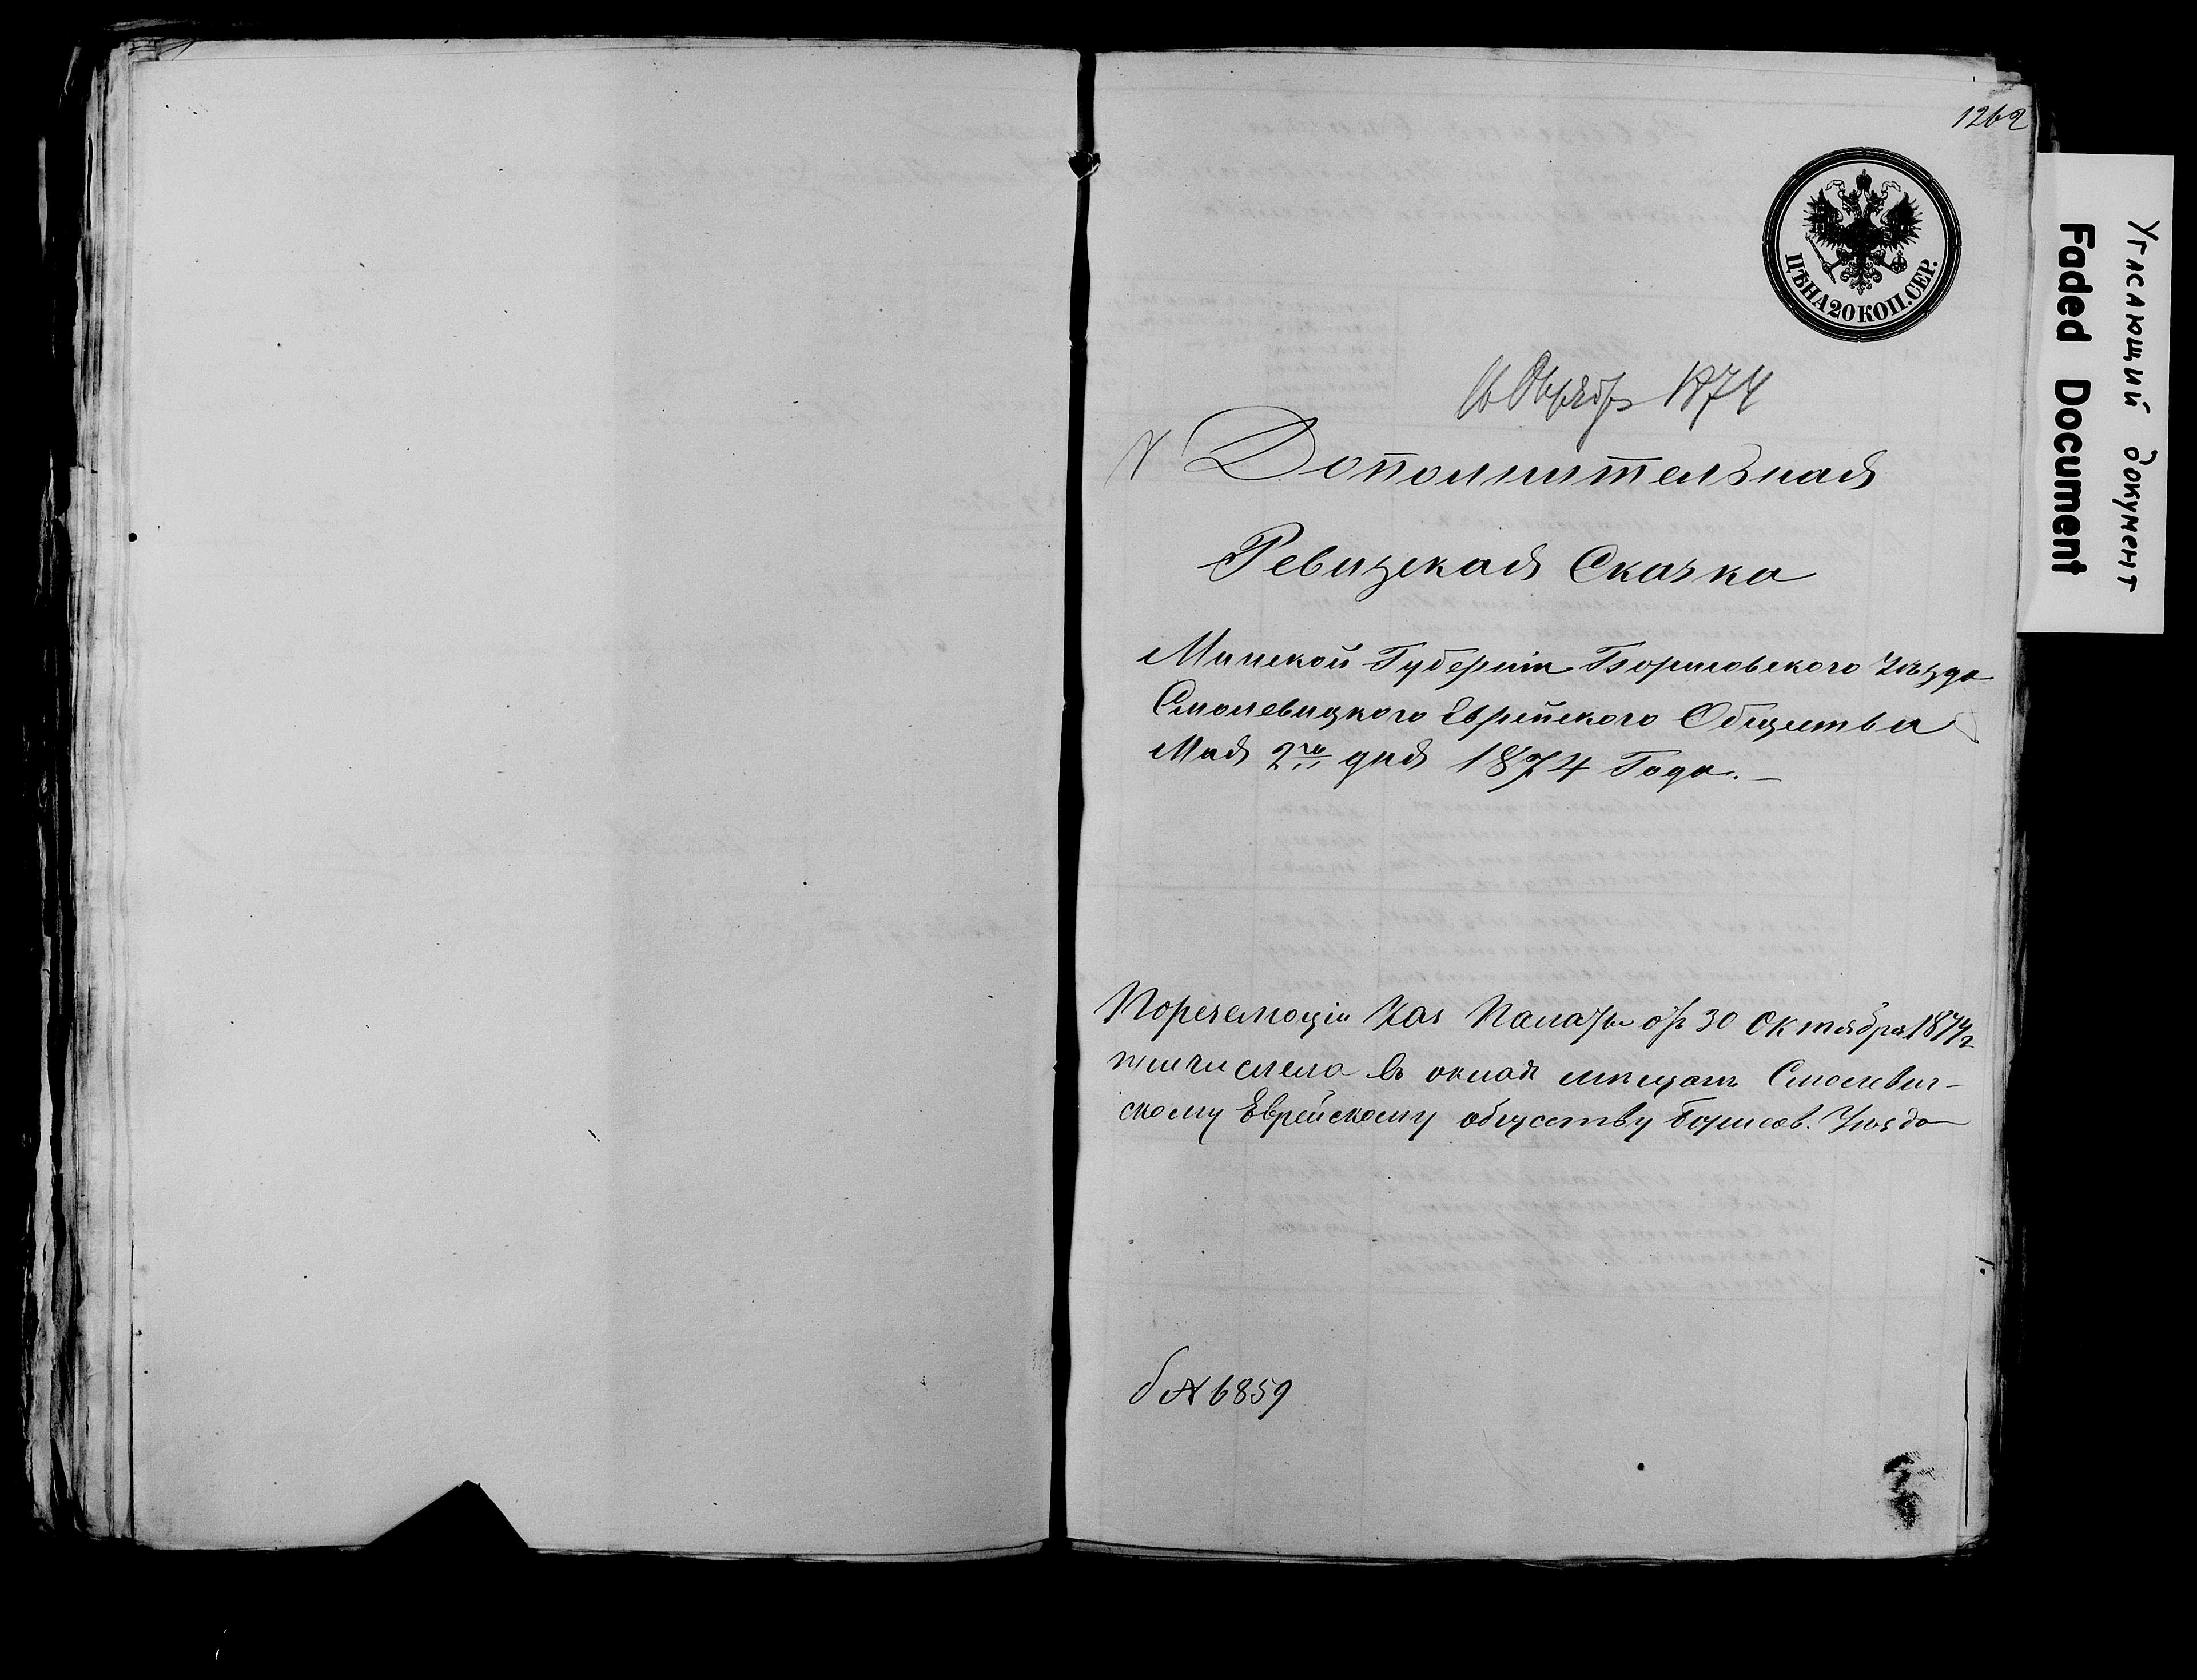 1262
ЦѢНА 20 КОП. СЕР.
Угасающий документ
Faded Document
Октябр 1874
Дополнительная
Ревизская Сказка
Минской Губерніи Борисовского Уѣзда
Смолевицкого Еврейского Общества
Мая 2го дня 1874 Года.—
По резолюціи Каз Палаты отъ 30 Октября 1874 г
причислена въ окладъ мѣщанъ Смолевич-
скому Еврейскому обществу Борисов. Уѣзда
№ 6859